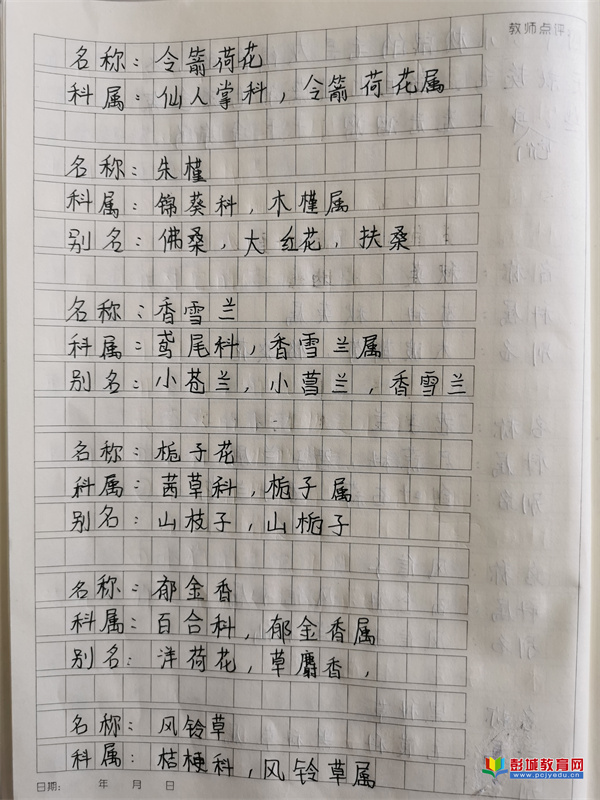 教师点评
名称：令箭荷花
科属：仙人掌科，令箭荷花属
名称：朱槿
科属：锦葵科，木槿属
别名：佛桑，大红花，扶桑
名称：香雪兰
科属：鸢尾科，香雪兰属
别名：小苍兰，小菖兰，香雪兰
名称：栀子花
科属：茜草科，栀子属
别名：山枝子，山栀子
名称：郁金香
科属：百合科，郁金香属
别名：洋荷花，草麝香，
名称：风铃草
科属：桔梗科，风铃草属
日期： 年 月 日
彭城教育网
www.pcjyedu.com